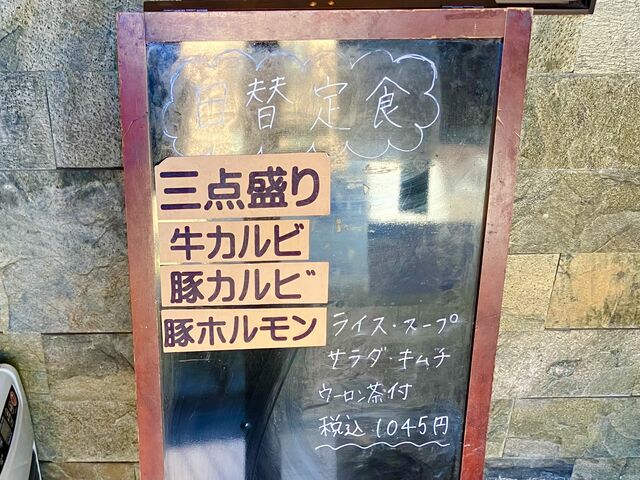 日替定食
三点盛り
牛カルビ
豚カルビ
豚ホルモン
ライス・スープ
サラダ・キムチ
ウーロン茶付
税込1045円